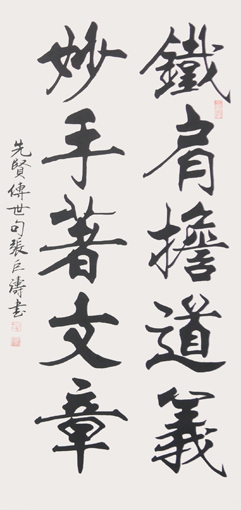 鐵肩擔道義
妙手著文章
先賢傳世句張巨濤書